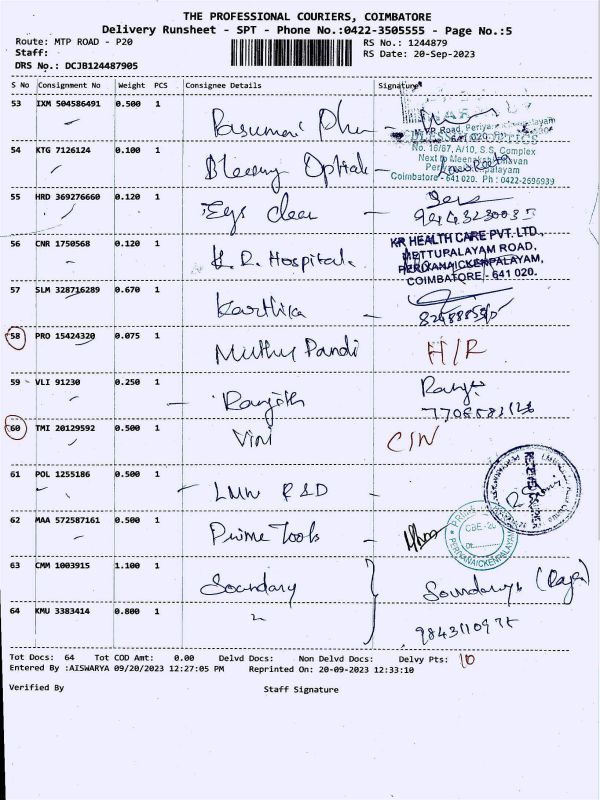 THE PROFESSIONAL COURIERS, COIMBATORE
Delivery Runsheet - SPT - Phone No.:0422-3505555 - Page No.:5
Route: MTP ROAD - P20
RS No.: 1244879
Staff:
RS Date: 20-Sep-2023
DRS No.: DCJB124487905
S No Consignment No Weight PCS Consignee Details Signature
53 IXM 504586491 0.500 1
54 KTG 7126124 0.100 1 Blessing Opticals
No. 16/67, A/10, S.S. Complex
Coimbatore - 641 020. Ph : 0422-2696939
55 HRD 369276660 0.120 1 Eys clear
56 CNR 1750568 0.120 1 K.R. Hospital.
KR HEALTH CARE PVT. LTD.,
METTUPALAYAM ROAD,
PERIYANAICKENPALAYAM,
COIMBATORE - 641 020.
57 SLM 328716289 0.670 1 Karthika
58 PRO 15424320 0.075 1 Muthu Pandi H/R
59 VLI 91230 0.250 1 Ranjith
60 TMI 20129592 0.500 1 Vini C/N
61 POL 1255186 0.500 1 LMW R&D
62 MAA 572587161 0.500 1 Prime Tools
PERIYANAICKENPALAYAM
63 CMM 1003915 1.100 1 Soundary
64 KMU 3383414 0.800 1 "
Tot Docs: 64 Tot COD Amt: 0.00 Delvd Docs: Non Delvd Docs: Delvy Pts: 10
Entered By :AISWARYA 09/20/2023 12:27:05 PM Reprinted On: 20-09-2023 12:33:10
Verified By Staff Signature